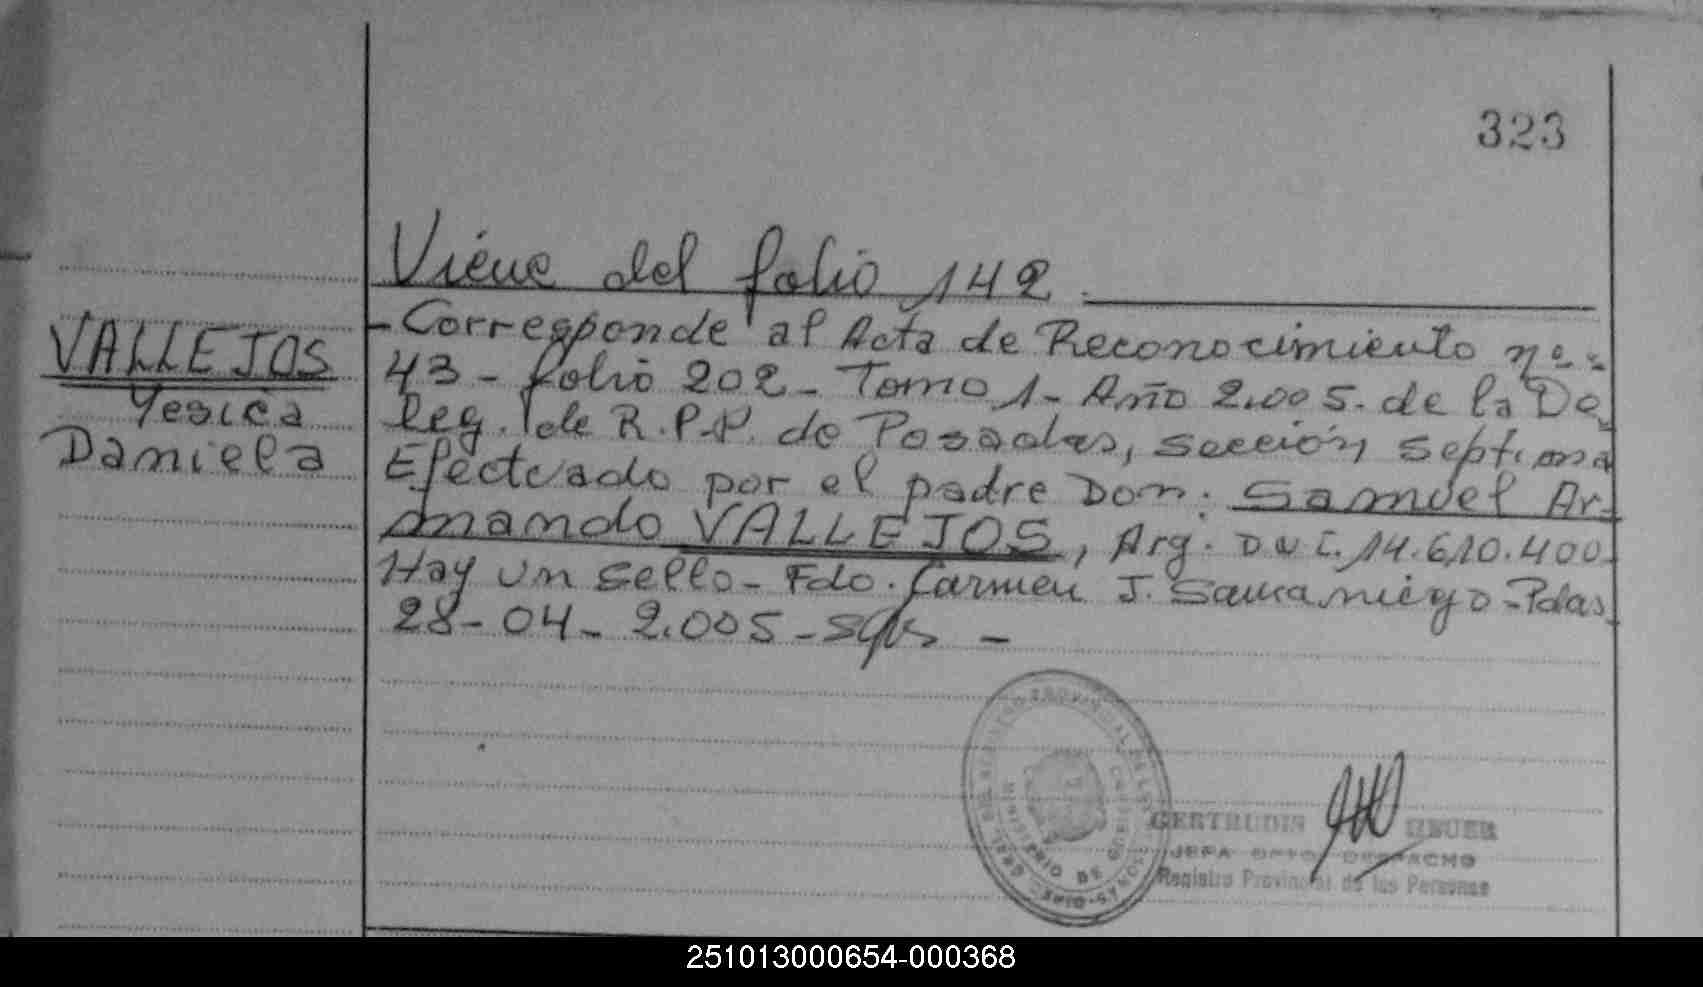 323
Viene del folio 142
VALLEJOS
Yesica
Daniela
- Corresponde al Acta de Reconocimiento nº
43 - folio 202 - Tomo 1 - Año 2.005. de la De
leg. de R.P.P. de Posadas, sección septima
Efectuado por el padre Don: Samuel Ar-
mando VALLEJOS, Arg. DNI. 14.610.400
Hay un sello - Fdo. Carmen J. Samaniego - Pdas
28 - 04 - 2.005 -
GERTRUDIS
JEFA DPTO DESPACHO
Registro Provincial de las Personas
251013000654-000368